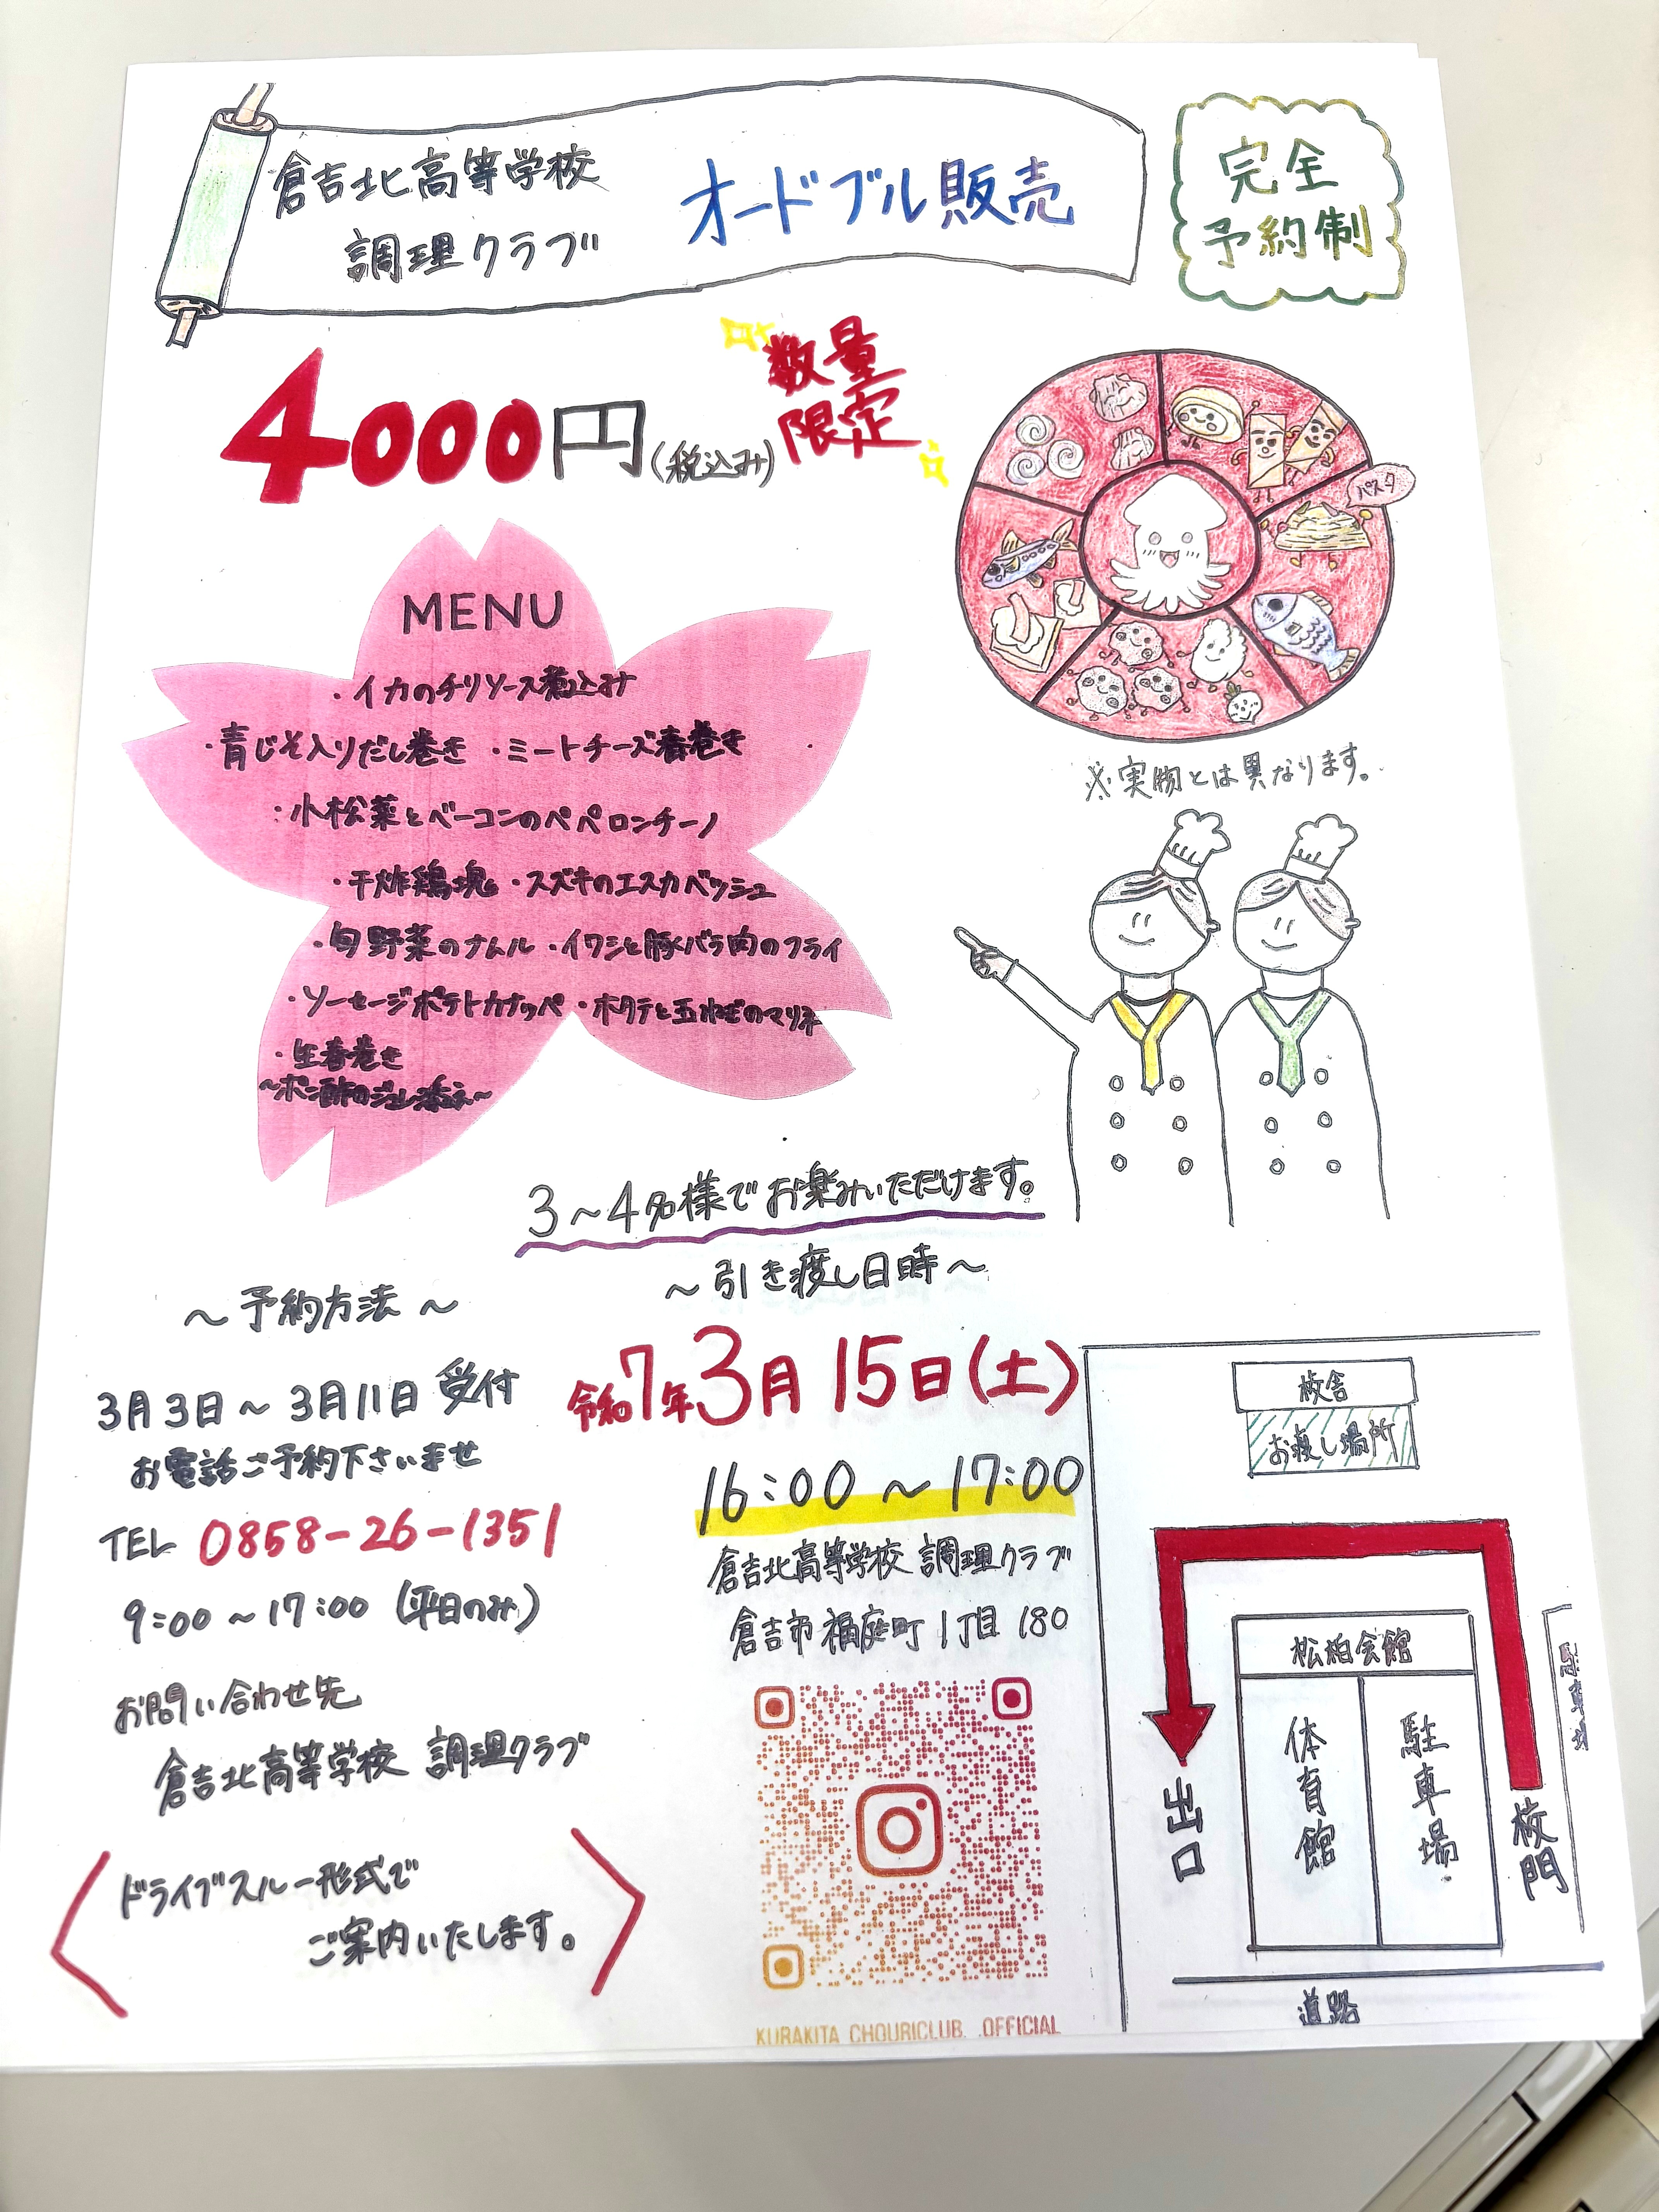 倉吉北高等学校
調理クラブ
オードブル販売
完全
予約制
4000円(税込み)
数量
限定
パスタ
※実物とは異なります。
MENU
・イカのチリソース煮込み
・青じそ入りだし巻き ・ミートチーズ春巻き
・小松菜とベーコンのペペロンチーノ
・干炸鶏塊 ・スズキのエスカベッシュ
・旬野菜のナムル ・イワシと豚バラ肉のフライ
・ソーセージポテトカナッペ ・ホタテと玉ねぎのマリネ
・生春巻き
～ポン酢のジュレ添え～
3～4名様でお楽しみいただけます。
～予約方法～
3月3日～3月11日 受付
お電話ご予約下さいませ
TEL 0858-26-1351
9:00～17:00 (平日のみ)
お問い合わせ先
倉吉北高等学校 調理クラブ
ドライブスルー形式で
ご案内いたします。
～引き渡し日時～
令和7年3月15日(土)
16:00～17:00
倉吉北高等学校 調理クラブ
倉吉市福庭町1丁目180
KURAKITA_CHOURICLUB._.OFFICIAL
校舎
お渡し場所
松柏会館
体育館
駐車場
駐車場
校門
出口
道路